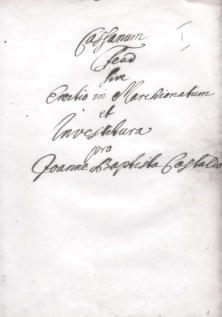 Cassanum
I
Feud
sive
Erectio in Marchionatum
et
Investitura
pro
Joanne Baptista Castaldo